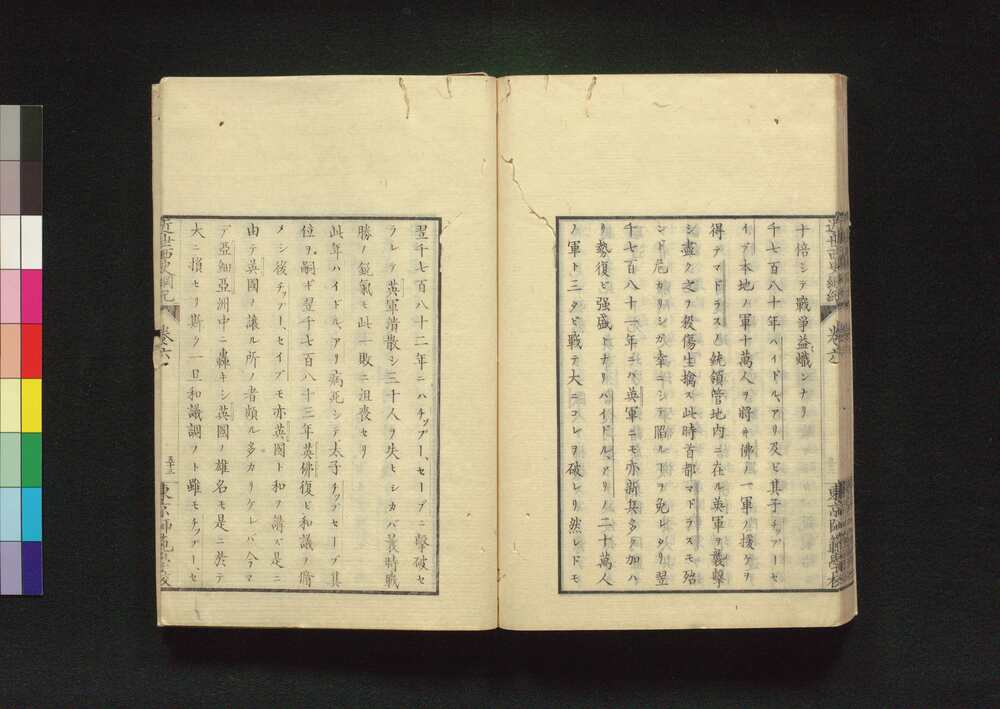 十倍シテ戰爭益熾ンナリ
千七百八十年ハイドル、アリ及ビ其子チップー、セ
イブ本地ノ軍十萬人ヲ將ヰ佛ノ一軍ノ援ケヲ
得テマドラスノ統領管地内ニ在ル英軍ヲ襲擊
シ盡ク之ヲ殺傷生擒ス此時首都マドラスモ殆
ンド危カリシガ幸ニシテ陷ルヿヲ免レタリ翌
千七百八十一年ニハ英軍ニモ亦新兵多ク加ハ
リ勢復ビ强盛トナリハイドル、アリノ二十萬人
ノ軍ト三タビ戰テ大ニコレヲ破レリ然レドモ
東京師範學校
翌千七百八十二年ニハチップー、セーブニ擊破セ
ラレテ英軍潰散シ三十人ヲ失ヒシカバ曩時戰
勝ノ銳氣モ此一敗ニ沮喪セリ
此年ハイドル、アリ病死シテ太子チップセーブ其
位ヲ嗣ギ翌千七百八十三年英佛復ビ和議ヲ脩
メシ後チップー、セイブモ亦英國ト和ヲ講ズ是ニ
由テ英國ノ讓ル所ノ者頗ル多カリケレバ今マ
デ亞細亞洲中ニ轟キシ英國ノ雄名モ是ニ於テ
大ニ損セリ斯ク一旦和議調フト雖モチップー、セ
近世西史綱紀
卷六
五十三
東京師範學校